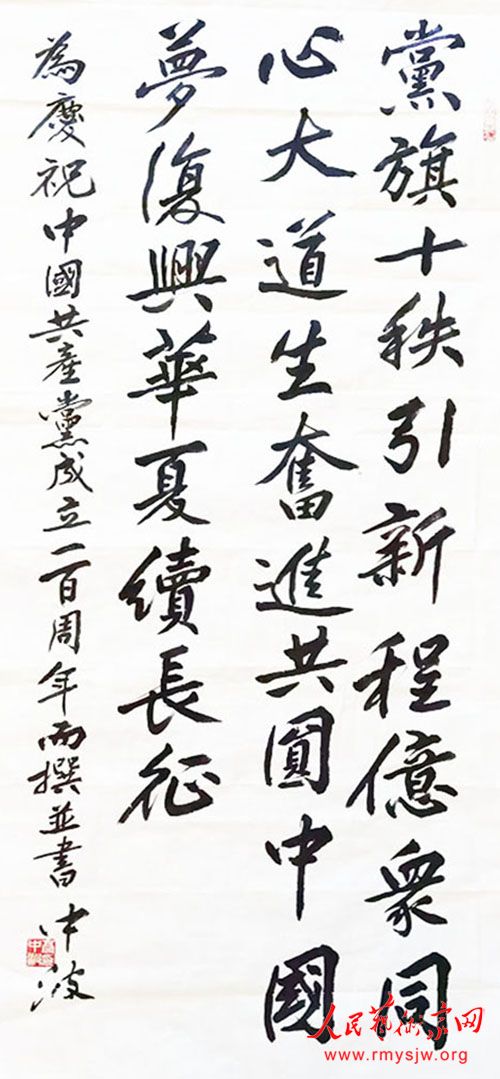 黨旗十秩引新程億衆同
心大道生奮進共圓中國
夢復興華夏續長征
為慶祝中國共產黨成立一百周年而撰並書 中波
人民藝術家网
www.rmysjw.org